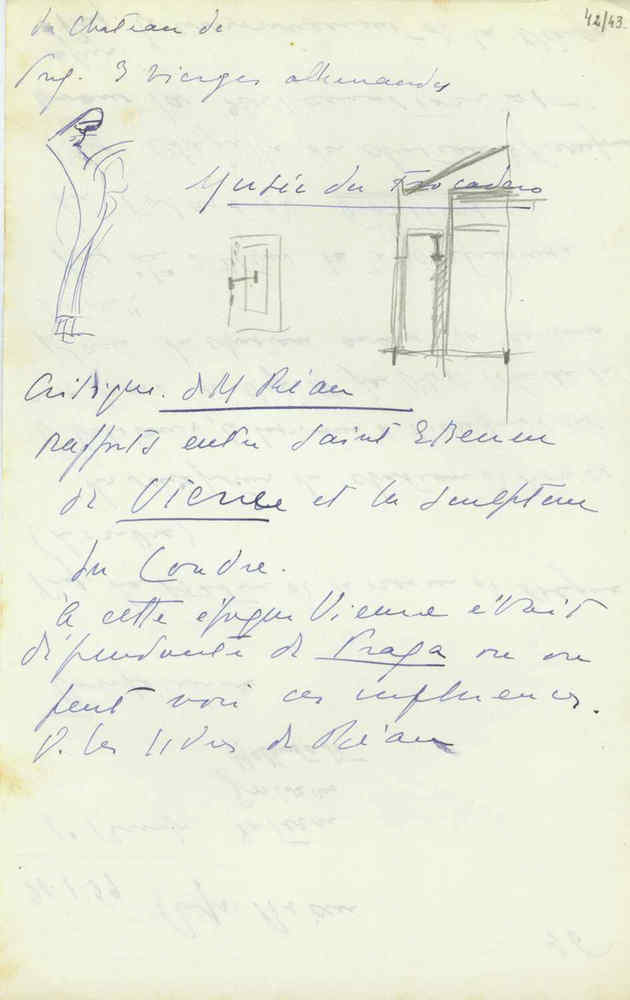 42/43
du Chateau de
Prag. 3 vierges allemandes
Musée du Trocadero
Critique. de M Réau
rapports entre Saint Etienne
de Vienne et la sculpture
du Londre.
à cette époque Vienne était
dépendante de Praga ou on
peut voir ces influences.
V. les livres de Réau